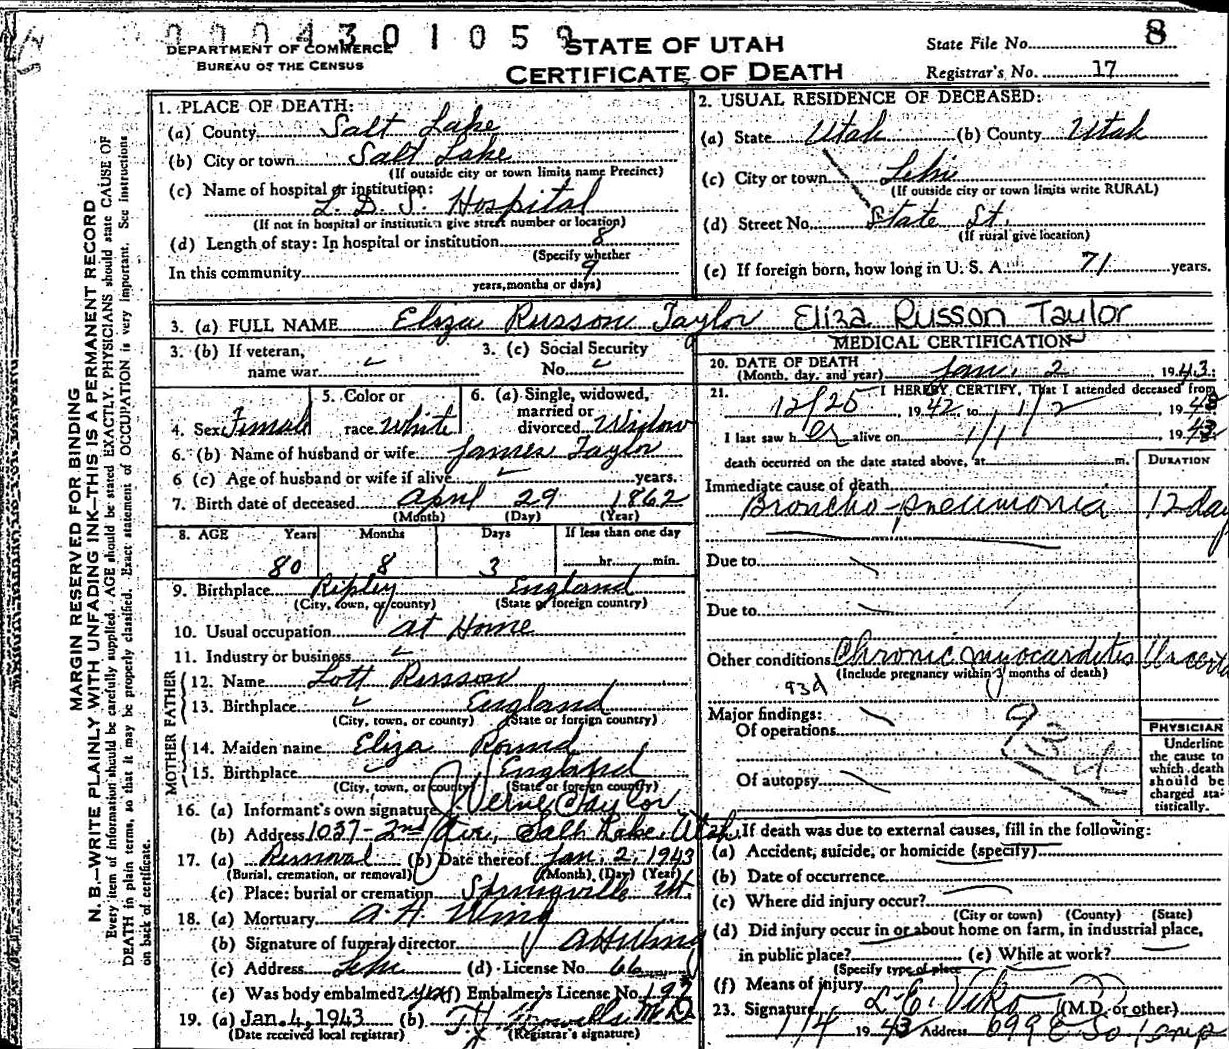 0004301059
DEPARTMENT OF COMMERCE
BUREAU OF THE CENSUS
STATE OF UTAH
CERTIFICATE OF DEATH
State File No. 8
Registrar's No. 17
MARGIN RESERVED FOR BINDING
N. B.—WRITE PLAINLY WITH UNFADING INK—THIS IS A PERMANENT RECORD
Every item of information should be carefully supplied. AGE should be stated EXACTLY. PHYSICIANS should state CAUSE OF
DEATH in plain terms, so that it may be properly classified. Exact statement of OCCUPATION is very important. See instructions
on back of certificate.
1. PLACE OF DEATH:
(a) County Salt Lake
(b) City or town Salt Lake
(If outside city or town limits name Precinct)
(c) Name of hospital or institution:
L. D. S. Hospital
(If not in hospital or institution give street number or location)
(d) Length of stay: In hospital or institution 8
(Specify whether
In this community 9
years, months or days)
2. USUAL RESIDENCE OF DECEASED:
(a) State Utah (b) County Utah
(c) City or town Lehi
(If outside city or town limits write RURAL)
(d) Street No. State St.
(If rural give location)
(e) If foreign born, how long in U. S. A. 71 years.
3. (a) FULL NAME Eliza Russon Taylor Eliza Russon Taylor
3. (b) If veteran,
name war
3. (c) Social Security
No.
4. Sex Female
5. Color or
race White
6. (a) Single, widowed,
married or
divorced Widow
6. (b) Name of husband or wife James Taylor
6 (c) Age of husband or wife if alive years.
7. Birth date of deceased April 29 1862
(Month) (Day) (Year)
8. AGE Years Months Days If less than one day
80 8 3 hr. min.
9. Birthplace Ripley England
(City, town, or county) (State or foreign country)
10. Usual occupation At Home
11. Industry or business
FATHER
12. Name Lott Russon
13. Birthplace England
(City, town, or county) (State or foreign country)
MOTHER
14. Maiden name Eliza Round
15. Birthplace England
(City, town, or county) (State or foreign country)
16. (a) Informant's own signature J. Verne Taylor
(b) Address 1037-2nd Ave, Salt Lake, Utah
17. (a) Removal (b) Date thereof Jan. 2, 1943
(Burial, cremation, or removal) (Month) (Day) (Year)
(c) Place: burial or cremation Springville Ut.
18. (a) Mortuary A. H. Wing
(b) Signature of funeral director A H Wing
(c) Address Lehi (d) License No. 66
(e) Was body embalmed? yes (f) Embalmer's License No. 192
19. (a) Jan. 4, 1943 (b) M D
(Date received local registrar) (Registrar's signature)
MEDICAL CERTIFICATION
20. DATE OF DEATH
(Month, day, and year) Jan. 2 1943
21. I HEREBY CERTIFY, That I attended deceased from
12/25, 1942 to 1/2, 1943
I last saw her alive on 1/1, 1943
death occurred on the date stated above, at m.
DURATION
Immediate cause of death
Broncho-pneumonia 12 day
Due to
Due to
Other conditions Chronic myocarditis
(Include pregnancy within 3 months of death)
93d
Major findings:
Of operations
Of autopsy
PHYSICIAN
Underline
the cause to
which death
should be
charged sta-
tistically.
If death was due to external causes, fill in the following:
(a) Accident, suicide, or homicide (specify)
(b) Date of occurrence
(c) Where did injury occur?
(City or town) (County) (State)
(d) Did injury occur in or about home on farm, in industrial place,
in public place? (e) While at work?
(Specify type of place
(f) Means of injury
23. Signature L. C. Viko (M.D. or other)
1/4 1943 Address 699 E So Temp